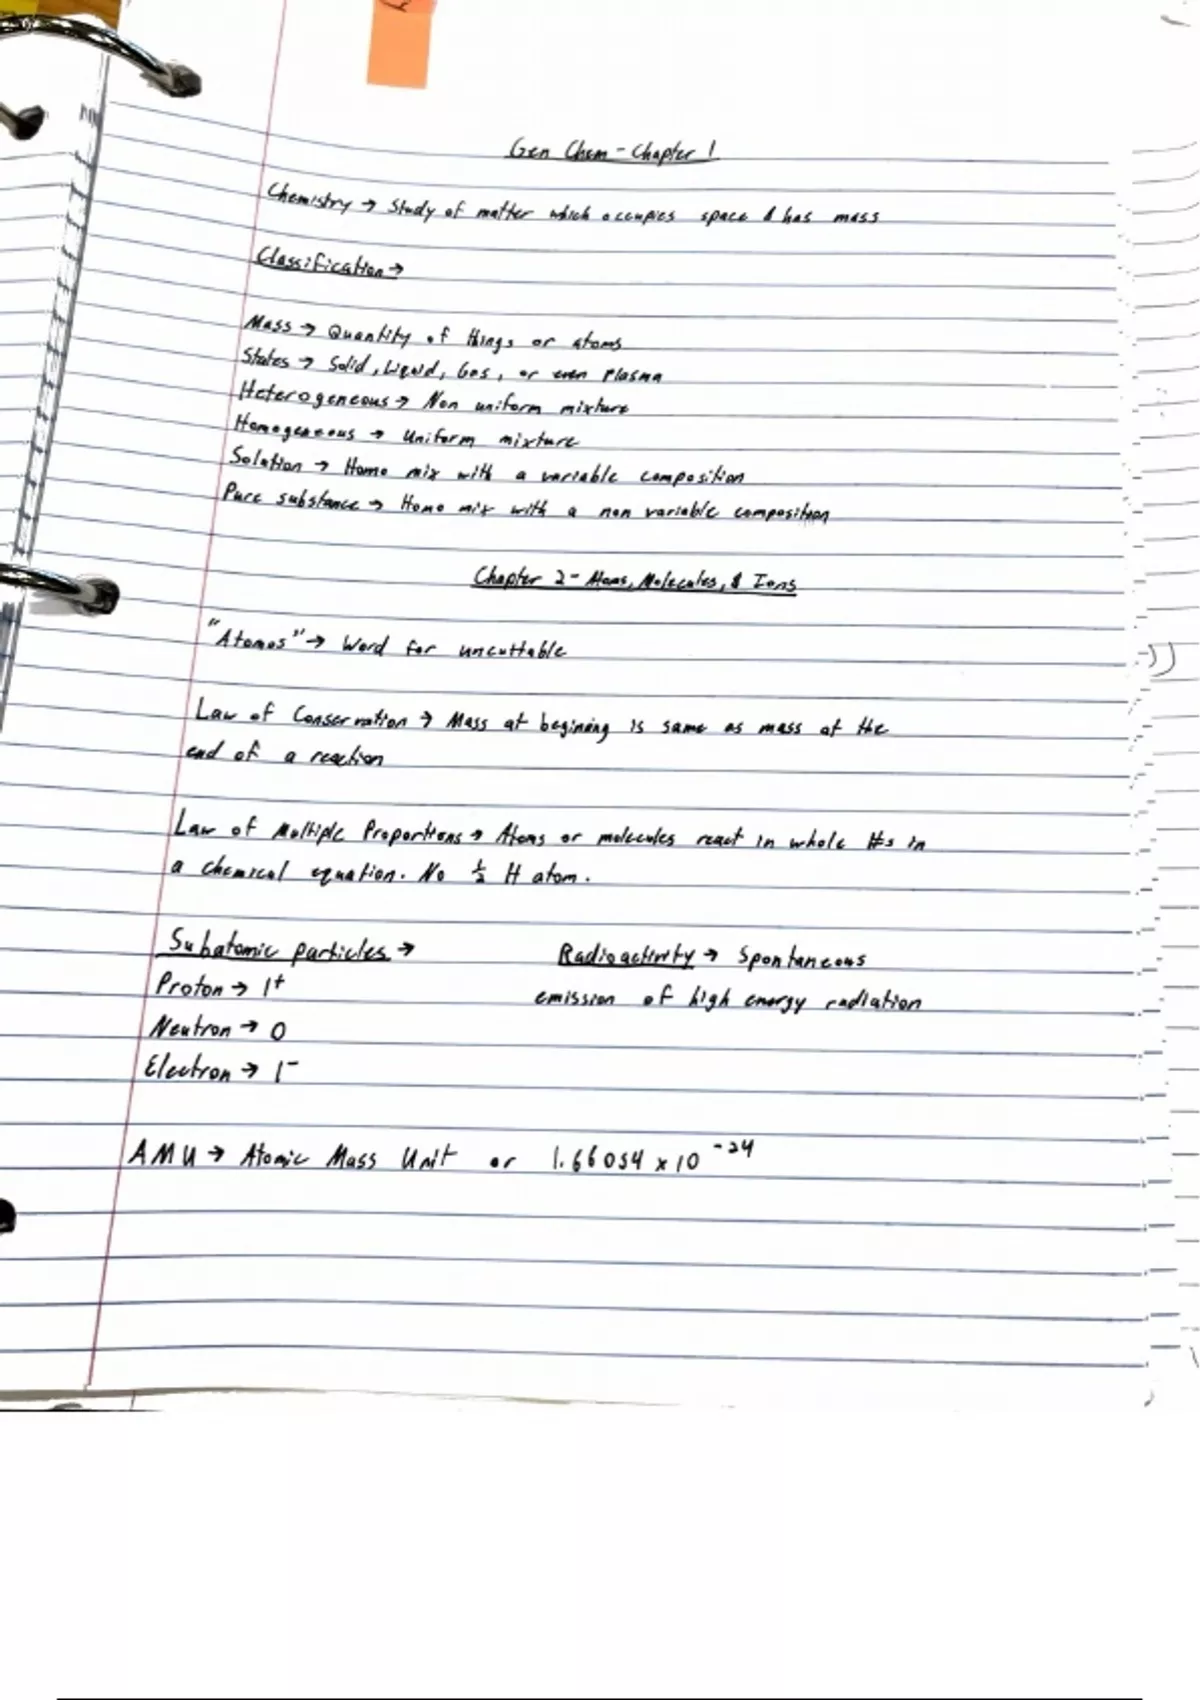 Gen Chem - Chapter 1
Chemistry → Study of matter which occupies space & has mass
Classification →
Mass → Quantity of things or atoms
States → Solid, Liquid, Gas, or even Plasma
Heterogeneous → Non uniform mixture
Homogeneous → Uniform mixture
Solution → Homo mix with a variable composition
Pure substance → Homo mix with a non variable composition
Chapter 2 - Atoms, Molecules, & Ions
"Atomos" → Word for uncuttable
Law of Conservation → Mass at begining is same as mass at the
end of a reaction
Law of Multiple Proportions → Atoms or molecules react in whole #s in
a chemical equation. No ½ H atom.
Subatomic particles →
Proton → 1+
Neutron → 0
Electron → 1-
Radioactivity → Spontaneous
emission of high energy radiation
AMU → Atomic Mass Unit or 1.66054 x 10 -24